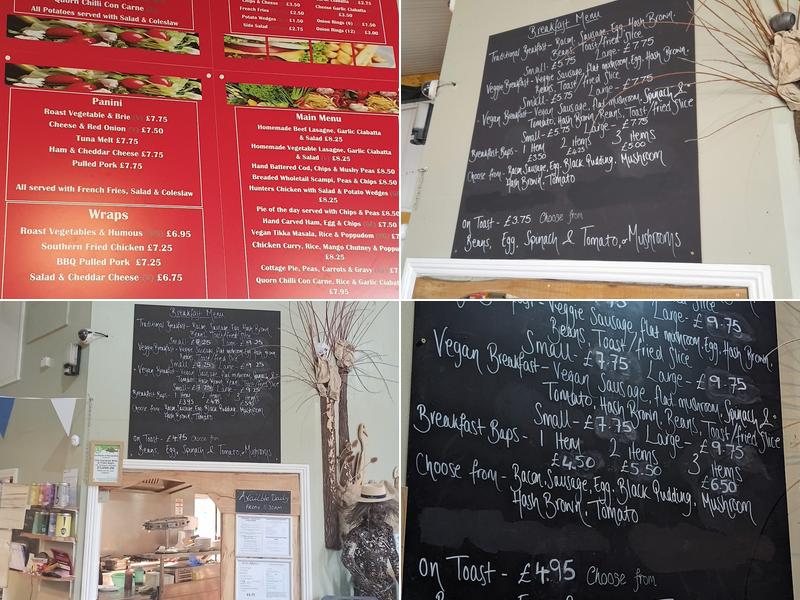 Quorn Chilli Con Carne
All Potatoes served with Salad & Coleslaw
Panini
Roast Vegetable & Brie (V) £7.75
Cheese & Red Onion (V) £7.50
Tuna Melt £7.75
Ham & Cheddar Cheese £7.75
Pulled Pork £7.75
All served with French Fries, Salad & Coleslaw
Wraps
Roast Vegetables & Humous £6.95
Southern Fried Chicken £7.25
BBQ Pulled Pork £7.25
Salad & Cheddar Cheese £6.75
Chips & Cheese £3.50
French Fries £2.50
Potato Wedges £1.50
Side Salad £2.75
£2.75
Cheese Garlic Ciabatta
£3.50
Onion Rings (6) £1.50
Onion Rings (12) £3.00
Main Menu
Homemade Beef Lasagne, Garlic Ciabatta
& Salad £8.25
Homemade Vegetable Lasagne, Garlic Ciabatta
& Salad (V) £8.25
Hand Battered Cod, Chips & Mushy Peas £8.50
Breaded Wholetail Scampi, Peas & Chips £8.50
Hunters Chicken with Salad & Potato Wedges
£8.25
Pie of the day served with Chips & Peas £8.50
Hand Carved Ham, Egg & Chips £7.50
Vegan Tikka Masala, Rice & Poppudom
Chicken Curry, Rice, Mango Chutney &
£8.25
Cottage Pie, Peas, Carrots & Gravy
Quorn Chilli Con Carne, Rice & Garlic
£7.95
Breakfast Menu
Traditional Breakfast - Bacon, Sausage, Egg, Hash Brown,
Beans, Toast/fried Slice
Small - £5.75 Large - £7.75
Veggie Breakfast - Veggie Sausage, flat mushroom, Egg, Hash Brown,
Beans, Toast/fried Slice
Small - £5.75 Large - £7.75
Vegan Breakfast - Vegan Sausage, flat mushroom, Spinach &
Tomato, Hash Brown, Beans, Toast/fried Slice
Small - £5.75 Large - £7.75
Breakfast Baps - 1 Item 2 Items 3 Items
£3.50 £4.25 £5.00
Choose from - Bacon, Sausage, Egg, Black Pudding, Mushroom
Hash Brown, Tomato
on Toast - £3.75 Choose from
Beans, Egg, Spinach & Tomato, or Mushrooms
Breakfast Menu
Traditional Breakfast - Bacon, Sausage, Egg, Hash Brown,
Beans, Toast/fried Slice
Veggie Breakfast - Veggie Sausage, flat mushroom, Egg, Hash Brown,
Beans, Toast/fried Slice
Vegan Breakfast - Vegan Sausage, flat mushroom, Spinach &
Tomato, Hash Brown, Beans, Toast/fried Slice
Breakfast Baps - 1 Item 2 Items 3 Items
Choose from - Bacon, Sausage, Egg, Black Pudding, Mushroom
Hash Brown, Tomato
on Toast - £4.75 Choose from
Beans, Egg, Spinach & Tomato, or Mushrooms
Available Daily
FROM 11.30AM
Small Large - £9.75
Breakfast - Veggie Sausage, flat mushroom, Egg, Hash Brown,
Beans, Toast/fried Slice
Small - £7.75 Large - £9.75
Vegan Breakfast - Vegan Sausage, flat mushroom, Spinach &
Tomato, Hash Brown, Beans, Toast/fried Slice
Small - £7.75 Large - £9.75
Breakfast Baps - 1 Item 2 Items 3 Items
£4.50 £5.50 £6.50
Choose from - Bacon, Sausage, Egg, Black Pudding, Mushroom
Hash Brown, Tomato
on Toast - £4.95 Choose from